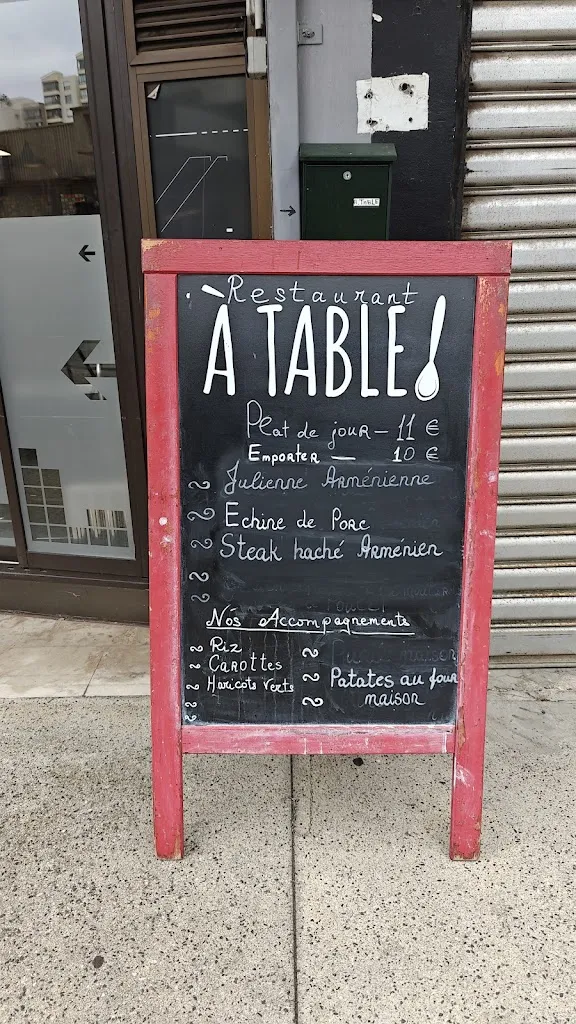 À TABLE
Restaurant
À TABLE!
Plat de jour — 11 €
Emporter — 10 €
Julienne Arménienne
Echine de Porc
Steak haché Arménien
Nos Accompagnements
Riz
Carottes
Haricots Verts
Patates au four
maison